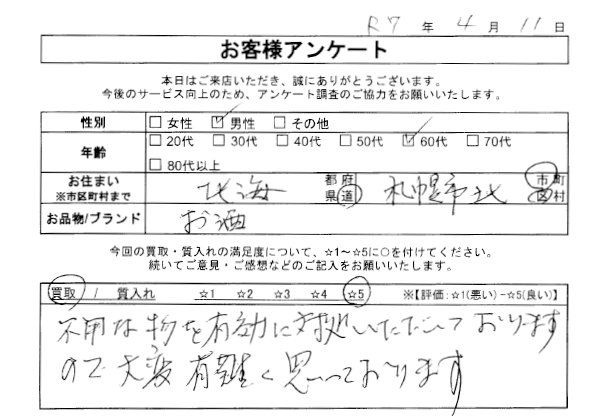 R7 年 4 月 11 日
お客様アンケート
本日はご来店いただき、誠にありがとうございます。
今後のサービス向上のため、アンケート調査のご協力をお願いいたします。
性別 □ 女性 ☑ 男性 □ その他
年齢 □ 20代 □ 30代 □ 40代 □ 50代 ☑ 60代 □ 70代
□ 80代以上
お住まい ※市区町村まで 北海 都府県道 札幌市北 市町区村
お品物/ブランド お酒
今回の買取・質入れの満足度について、☆1～☆5に○を付けてください。
続いてご意見・ご感想などのご記入をお願いいたします。
買取 / 質入れ ☆1 ☆2 ☆3 ☆4 ☆5 ※【評価:☆1(悪い)-☆5(良い)】
不用な物を有効に対処いただいております
ので大変有難く思っております